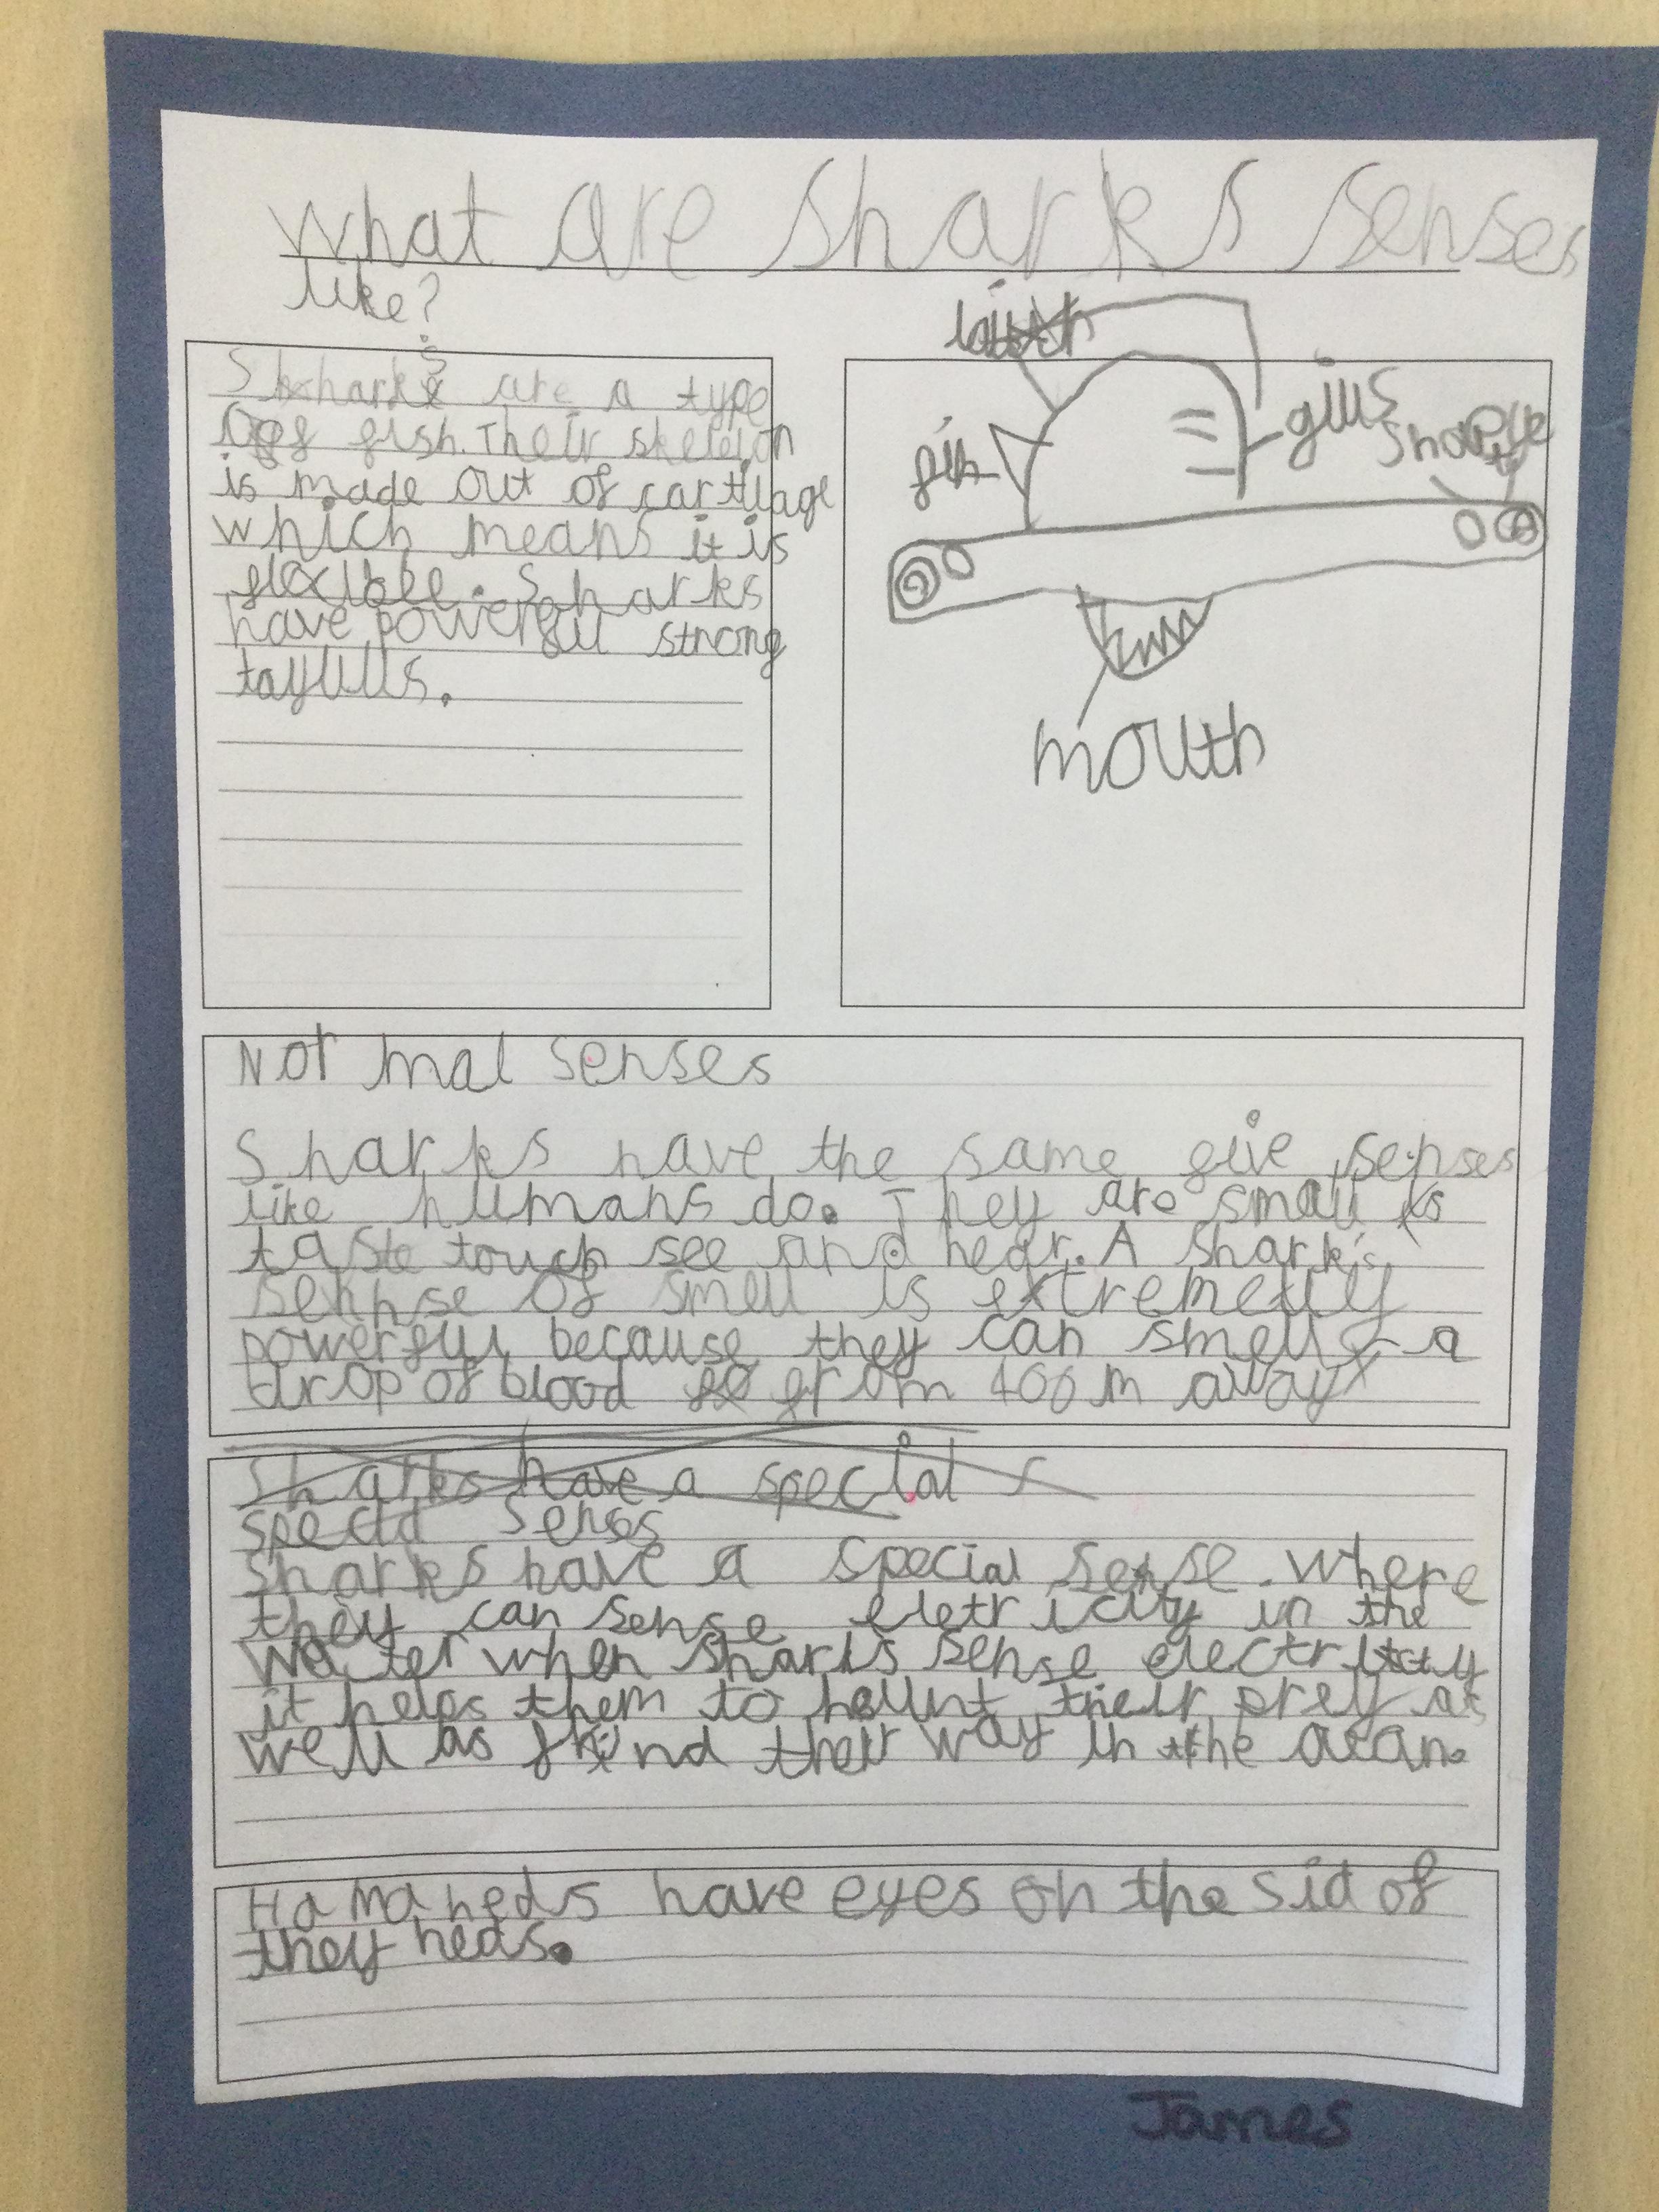 What are sharks senses
like?
Sharks are a type
of fish. Their skeleton
is made out of cartilage
which means it is
flexible. Sharks
have powerfull strong
tayllls.
fin
gills
mouth
Normal senses
Sharks have the same five senses
like humans do. They are smell
taste touch see and hear. A shark's
sense of smell is extremelly
powerfull because they can smell a
drop of blood from 400m away
Sharks have a special s
special senses
Sharks have a special sense. where
they can sense eletricity in the
water when sharks sense electricity
it helps them to hunt their prey as
well as find their way in the ocan.
Hamaheds have eyes on the sid of
they heds.
James